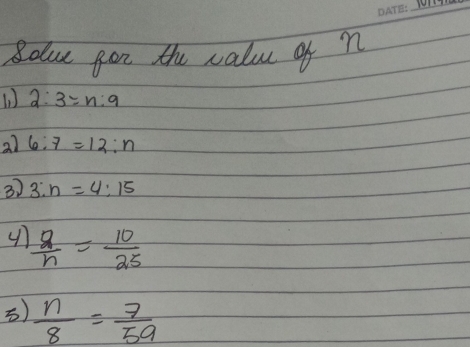 DATE:
Solve for the value of n
1.) 2:3=n:9
2) 6:7=12:n
3) 3:n=4:15
4) 2/n = 10/25
5) n/8 = 7/59